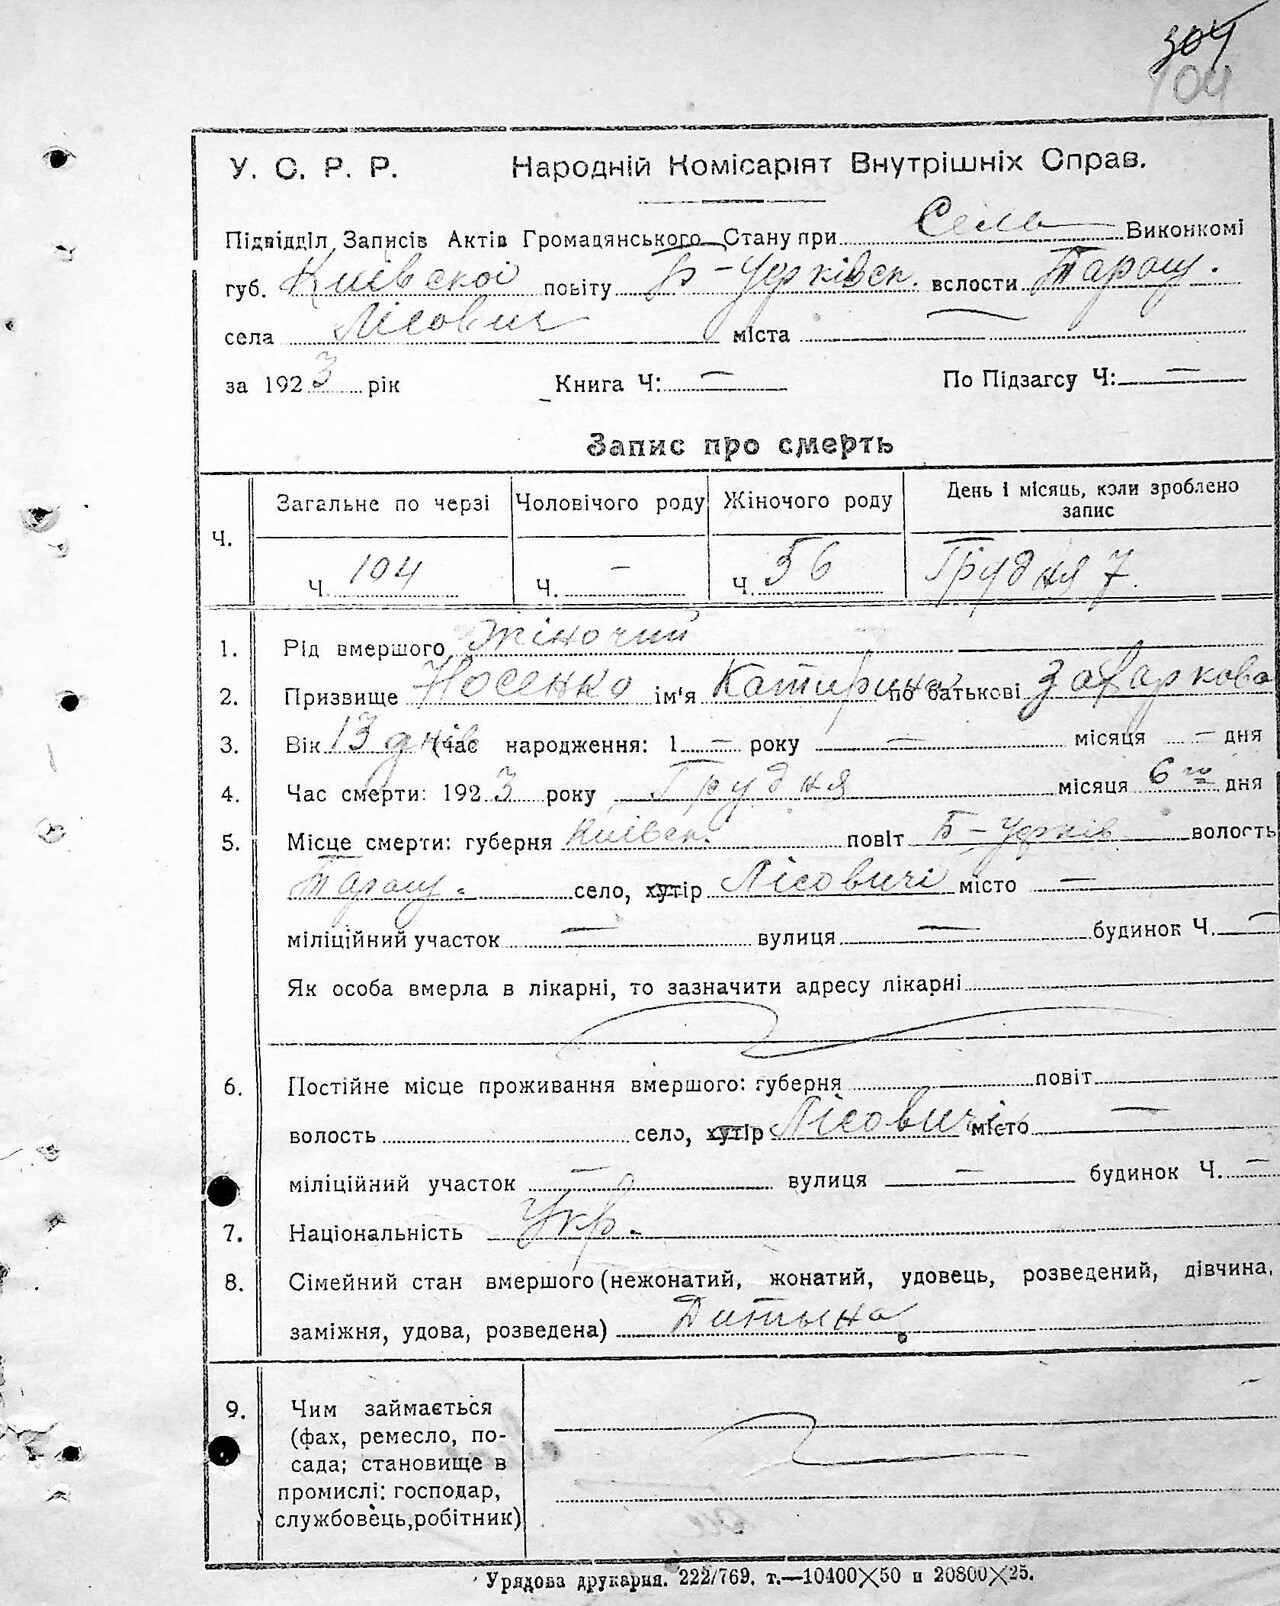 304
104
У. С. Р. Р. Народній Комісаріят Внутрішніх Справ.
Підвідділ Записів Актів Громадянського Стану при Сель Виконкомі
губ. Київскої повіту Б-Церківск. волости Таращ.
села Лісович міста
за 1923 рік Книга Ч: — По Підзагсу Ч: —
Запис про смерть
Ч. Загальне по черзі Чоловічого роду Жіночого роду День і місяць, коли зроблено запис
Ч. 104 Ч. — Ч. 56 Грудня 7.
1. Рід вмершого Жіночий
2. Призвище Носенко ім'я Катирина по батькові Захаркова
3. Вік 13 днів (час народження: 1 — року — місяця — дня
4. Час смерти: 1923 року Грудня місяця 6го дня
5. Місце смерти: губерня Київск. повіт Б-Церків волость
Таращ. село, хутір Лісовичі місто —
міліційний участок — вулиця — будинок Ч. —
Як особа вмерла в лікарні, то зазначити адресу лікарні
6. Постійне місце проживання вмершого: губерня повіт
волость село, хутір Лісовичі місто —
міліційний участок — вулиця — будинок Ч. —
7. Національність Укр.
8. Сімейний стан вмершого (нежонатий, жонатий, удовець, розведений, дівчина,
заміжня, удова, розведена) Дитына
9. Чим займається
(фах, ремесло, по-
сада; становище в
промислі: господар,
службовець, робітник)
Урядова друкарня. 222/769. т.—10400×50 и 20800×25.